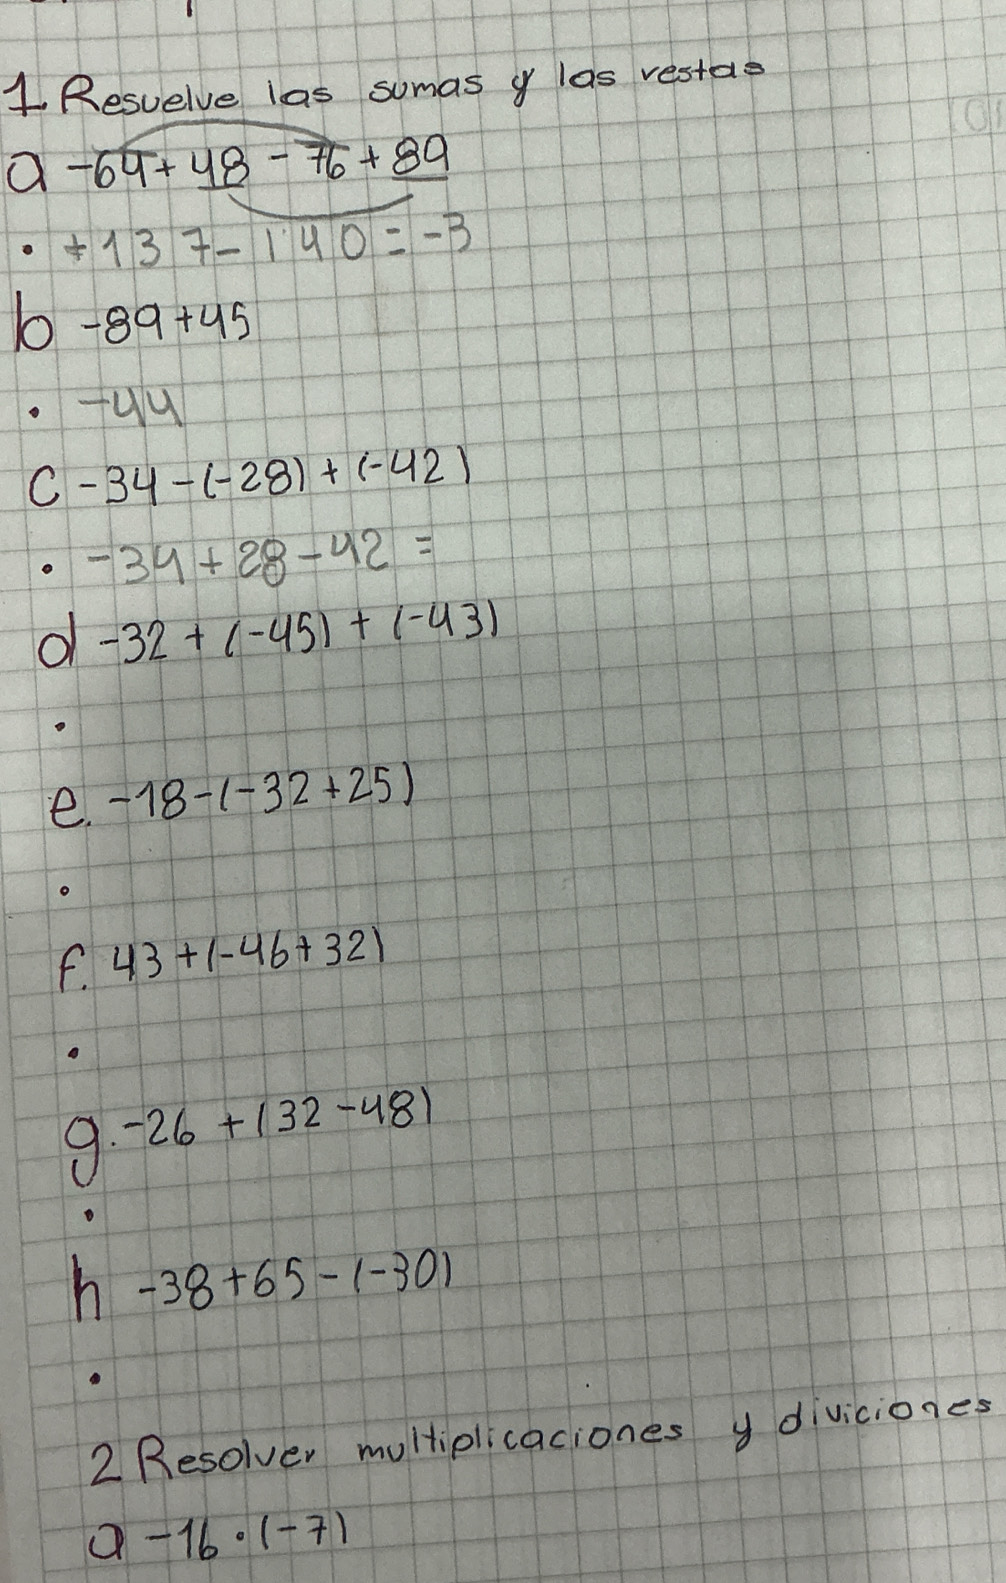 1 Resuelve las sumas y las restas
a -64+48-76+89
• +137-140=-3
b -89+45
• -44
c -34-(-28)+(-42)
• -34+28-42=
d -32+(-45)+(-43)
•
e. -18-(-32+25)
•
f. 43+(-46+32)
•
g. -26+(32-48)
•
h -38+65-(-30)
•
2 Resolver multiplicaciones y diviciones
a -16·(-7)